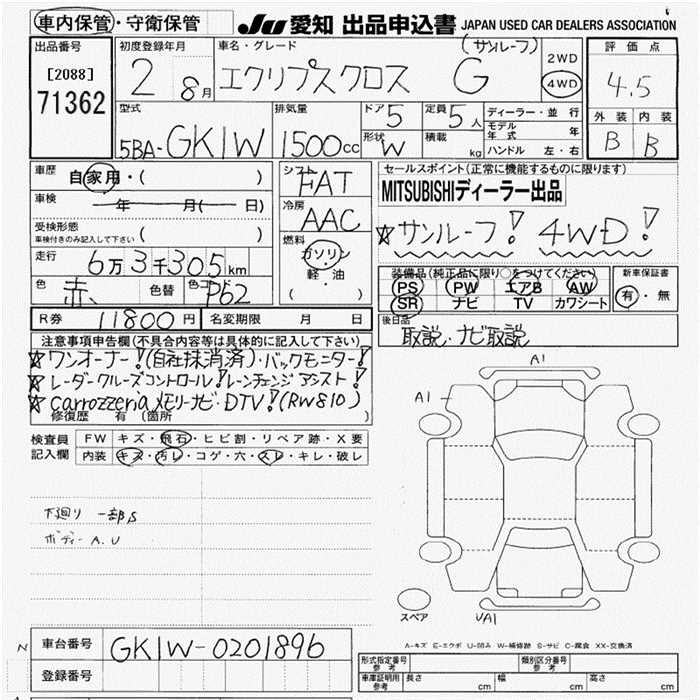 車内保管・守衛保管
JU 愛知 出品申込書 JAPAN USED CAR DEALERS ASSOCIATION
出品番号
[2088]
71362
初度登録年月
2 8月
車名・グレード
(サンルーフ)
エクリプスクロス G
2WD
4WD
評価点
4.5
外装 内装
B B
型式
5BA-GK1W
排気量
1500cc
ドア 5
定員 5人
形状 W
積載 kg
ディーラー・並行
モデル年式 年
ハンドル 左・右
車歴 自家用・( )
車検 年 月( 日)
受検形態
車検付きのみ記入して下さい ( )
走行 6万3千305km
色 赤 色替 色コード P62
シフト FAT
冷房 AAC
燃料
ガソリン
軽・油
( )
セールスポイント(正常に機能するものに限ります)
MITSUBISHIディーラー出品
☆サンルーフ! 4WD!
装備品(純正品に限り○をつけてください)
PS PW エアB AW
SR ナビ TV カワシート
新車保証書
有・無
R券 11800円 名変期限 月 日
後日品
取説・ナビ取説
注意事項申告欄(不具合内容等は具体的に記入して下さい)
☆ワンオーナー!(自社抹消済)・バックモニター!
☆レーダークルーズコントロール!レーンチェンジアシスト!
☆carrozzeriaメモリーナビ・DTV!(RW810)
修復歴 有(箇所 )
検査員記入欄
FW キズ・飛石・ヒビ割・リペア跡・X要
内装 キズ・汚レ・コゲ・穴・スレ・キレ・破レ
下廻り 一部S
ボディー A.U
A1
A1
スペア
UA1
A-キズ E-エクボ U-凹み W-補修跡 S-サビ C-腐食 XX-交換済
N
車台番号 GK1W-0201896
登録番号
型式指定番号 参考
類別区分番号 参考
車庫証明用 参考 長さ cm 幅 cm 高さ cm